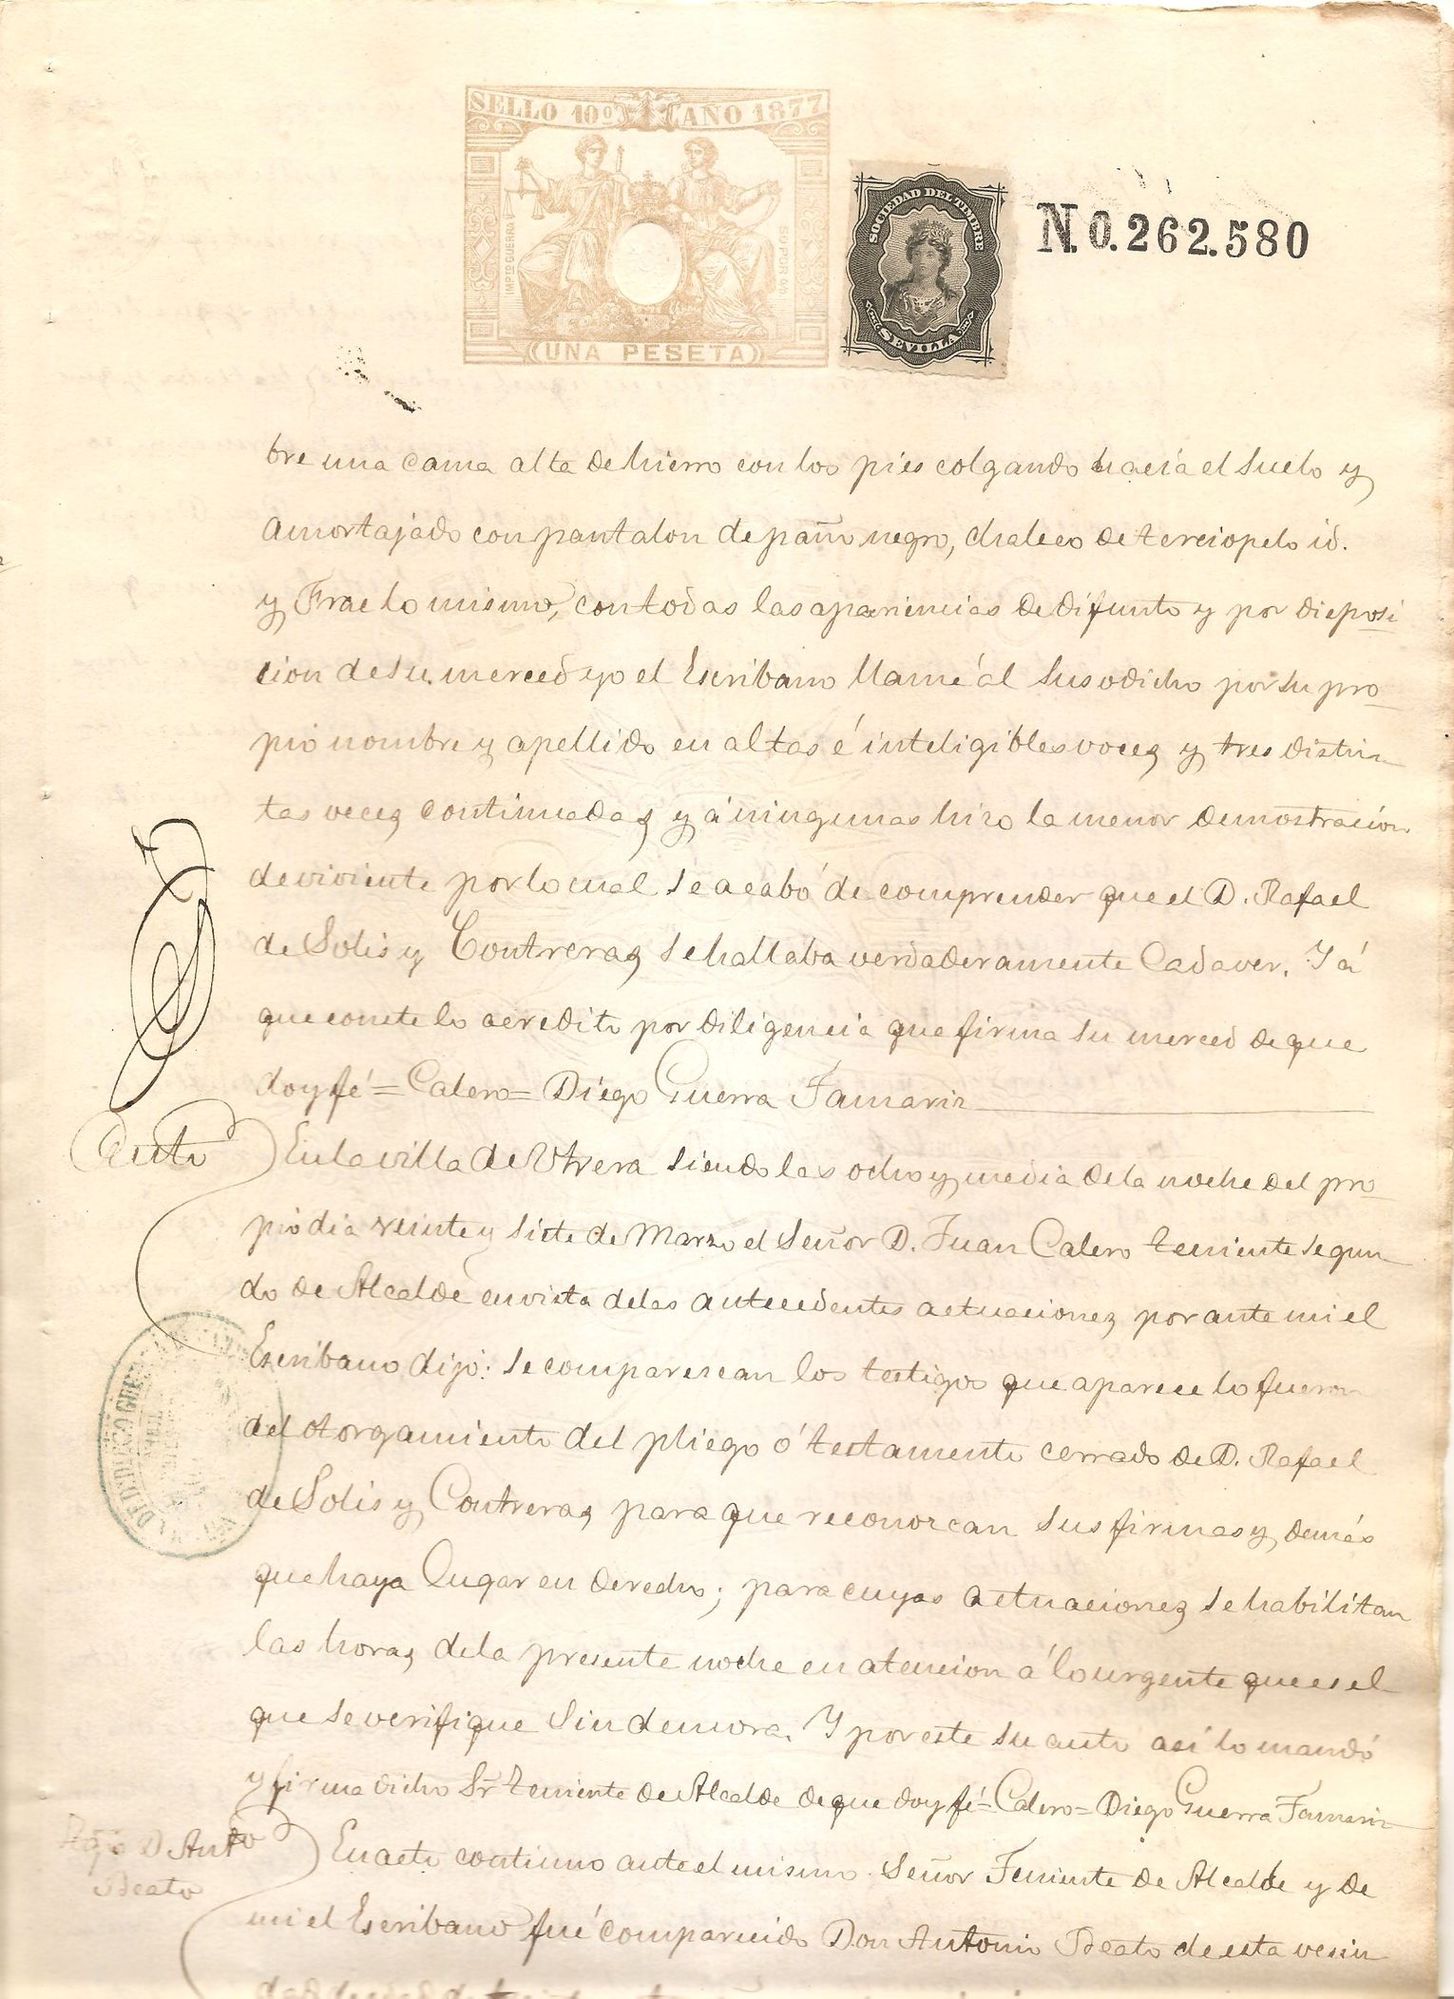 SELLO 10º AÑO 1877
IMPTO GUERRA
50 POR 100
UNA PESETA
SOCIEDAD DEL TIMBRE
SEVILLA
N. 0.262.580
bre una cama alta de hierro con los pies colgando hacia el suelo y
amortajado con pantalon de paño negro, chaleco de terciopelo id.
y Frac lo mismo, con todas las apariencias de difunto y por disposi
cion de su merced yo el Escribano llamé al susodicho por su pro-
pio nombre y apellido en altas é inteligibles voces y tres distin-
tas veces continuadas y á ningunas hizo la menor demostracion
de viviente por lo cual se acabó de comprender que el D. Rafael
de Solis y Contreras se hallaba verdaderamente Cadaver. Y á
que conste lo acredito por diligencia que firma su merced de que
doy fé = Calero = Diego Guerra Tamariz
Auto
En la villa de Utrera siendo las ocho y media de la noche del pro-
pio dia veinte y siete de Marzo el Señor D. Juan Calero teniente segun-
do de Alcalde en vista de las antecedentes actuaciones por ante mi el
Escribano dijo: se comparescan los testigos que aparece lo fueron
del otorgamiento del pliego ó testamento cerrado de D. Rafael
de Solis y Contreras para que reconozcan sus firmas y demás
que haya lugar en derecho; para cuyas actuaciones se habilitan
las horas de la presente noche en atencion á lo urgente que es el
que se verifique sin demora. Y por este su auto asi lo mandó
y firma dicho Sr teniente de Alcalde de que doy fé = Calero = Diego Guerra Tamariz
D. Anto
Beato
En acto continuo ante el mismo Señor Teniente de Alcalde y de
mi el Escribano fué comparecido Don Antonio Beato de esta vecin